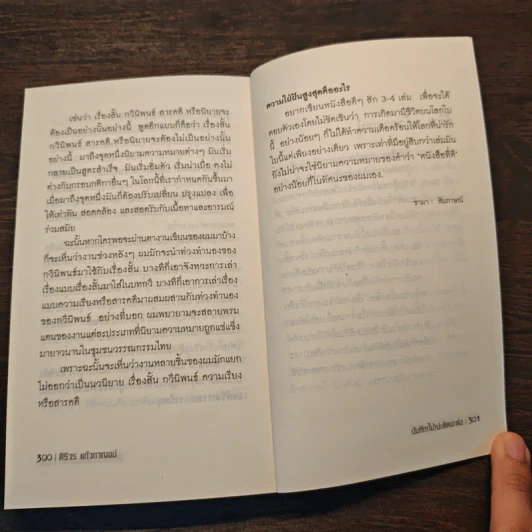 เช่นว่า เรื่องสั้น กวีนิพนธ์ สารคดี หรือนิยายจะ
ต้องเป็นอย่างนั้นอย่างนี้ พูดอีกแบบก็คือว่า เรื่องสั้น
กวีนิพนธ์ สารคดี หรือนิยายจะต้องไม่เป็นอย่างนั้น
อย่างนี้ มาถึงจุดหนึ่งนิยามความหมายต่างๆ มันเริ่ม
กลายเป็นสูตรสำเร็จ มันเริ่มอิ่มตัว เริ่มน่าเบื่อ คงไม่
ต่างกับกรอบกติกาอื่นๆ ในโลกนี้ที่เรากำหนดกันขึ้นมา
เมื่อมาถึงจุดหนึ่งมันก็ต้องปรับเปลี่ยน ปรุงแปลง เพื่อ
ให้เท่าทัน สอดคล้อง และสอดรับกับเนื้อหาและอารมณ์
ร่วมสมัย
ฉะนั้นหากใครพอจะผ่านตางานเขียนของผมมาบ้าง
ก็จะเห็นว่างานช่วงหลังๆ ผมมักจะนำท่วงทำนองของ
กวีนิพนธ์มาใช้กับเรื่องสั้น บางทีก็เอาจังหวะการเล่า
เรื่องแบบเรื่องสั้นมาใส่ในบทกวี บางทีก็เอาการเล่าเรื่อง
แบบความเรียงหรือสารคดีมาผสมผสานกับท่วงทำนอง
ของกวีนิพนธ์ อย่างที่บอก ผมพยายามจะสลายพรม
แดนของงานแต่ละประเภทที่นิยามความหมายถูกแช่แข็ง
มายาวนานในชุมชนวรรณกรรมไทย
เพราะฉะนั้นจะเห็นว่างานหลายชิ้นของผมมักแยก
ไม่ออกว่าเป็นนวนิยาย เรื่องสั้น กวีนิพนธ์ ความเรียง
หรือสารคดี
300 | ศิริวร แก้วกาญจน์
ความใฝ่ฝันสูงสุดคืออะไร
อยากเขียนหนังสือดีๆ สัก 3-4 เล่ม เพื่อจะได้
ตอบตัวเองโดยไม่ขัดเขินว่า การเกิดมามีชีวิตบนโลกใบ
นี้ อย่างน้อยๆ ก็ไม่ได้ทำความเดือดร้อนให้โลกที่น่ารัก
ใบนี้แต่เพียงอย่างเดียว เพราะเท่าที่มีอยู่สิบกว่าเล่มนั้น
ยังไม่น่าจะใช่นิยามความหมายของคำว่า 'หนังสือที่ดี'
อย่างน้อยก็ในทัศนะของผมเอง.
301